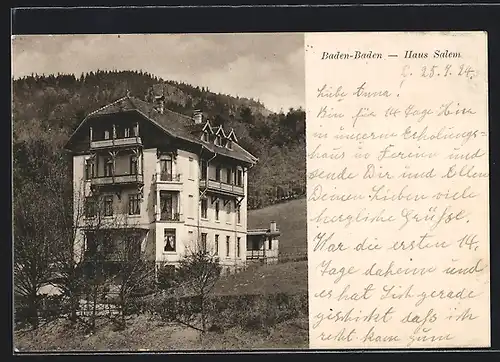 Baden-Baden — Haus Salem
25.4.24.
Liebe Anna!
Bin für 14 Tage hier
in unserm Erholungs-
haus in Ferien und
sende Dir und Allen
Deinen Lieben viele
herzliche Grüße.
War die ersten 14.
Tage daheim und
es hat sich gerade
geschickt daß ich
recht kam zum